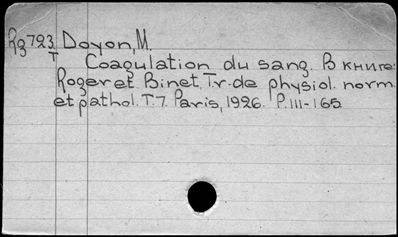 Rg 723 Doyon, M.
T Coagulation du sang. В книге:
Roger et Binet. Tr. de physiol. norm.
et pathol. T.7. Paris, 1926. P. 111-165